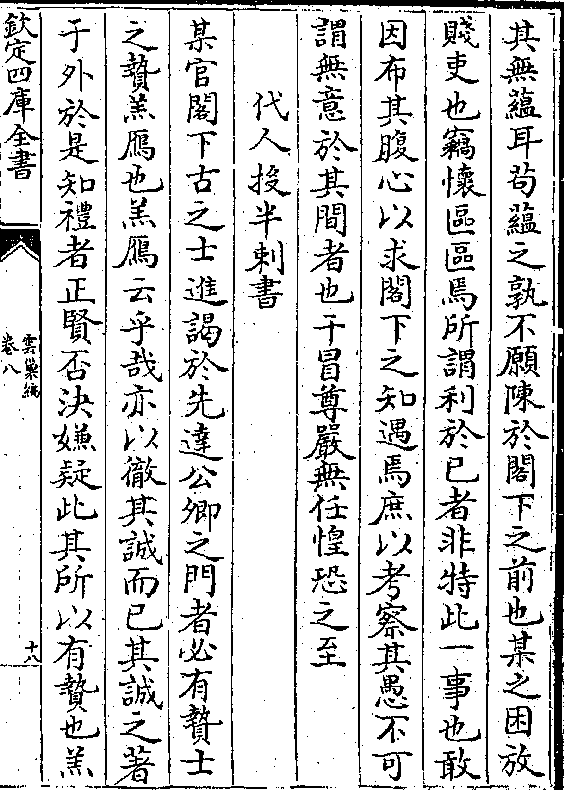 其無蘊耳苟蘊之孰不願陳於閣下之前也某之困放
賤吏也竊懷區區焉所謂利於己者非特此一事也敢
因布其腹心以求閣下之知遇焉庶以考察其愚不可
謂無意於其間者也干冒尊嚴無任惶恐之至
代人投半刺書
某官閣下古之士進謁於先達公卿之門者必有贄士
之贄羔鴈也羔鴈云乎哉亦以徹其誠而已其誠之著
于外於是知禮者正賢否決嫌疑此其所以有贄也羔
欽定四庫全書
雲巢編
卷八
十八